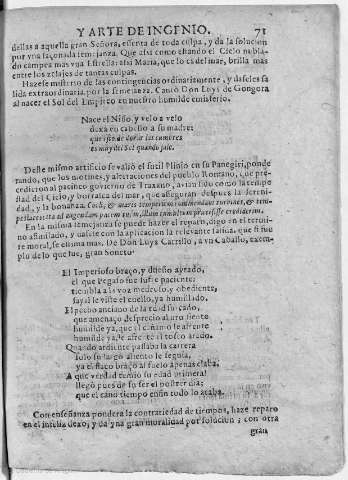 Y ARTE DE INGENIO. 71
dellas a aquella gran Señora, essenta de toda culpa, y da la solucion
por vna sazonada semejança. Que assi como estando el Cielo nublado
campea mas vna Estrella: assi Maria, que lo es del mar, brilla mas
entre los zelajes de tantas culpas.
Hazese misterio de las contingencias ordinariamente, y dasele salida
extraordinaria por la semejança. Cantó Don Luys de Gongora
al nacer el Sol del Empireo en nuestro humilde emisferio.
Nace el Niño, y velo a velo
dexa en cabello a su madre:
que esto de dorar las cumbres
es muy del Sol quando sale.
Deste mismo artificio se valió el sutil Plinio en su Panegiri, ponderando,
que los motines, y alteraciones del pueblo Romano, que precedieron
al pacifico govierno de Traxano, avian sido como la tempestad
del Cielo, y borrasca del mar, que asseguran despues la serenidad,
y la bonança.
En la misma semejança se puede hazer el reparo, digo en el termino
assimilado, y satisfacese con la aplicacion relevante latina, que si fuere
moral, se estima mas. De Don Luys Carrillo, a vn Caballo, exemplo
de lo que fue, gran Soneto
El Imperioso braço, y dueño ayrado,
el que Pegaso fue sufre paciente:
tiembla a la voz medroso, y obediente,
sayal le viste el cuello, ya humillado.
El pecho anciano de la edad su caño,
que amenaço desprecio al oro siente
humilde ya, que el cañamo le afrente
humilde ya, le afrente el tosco arado.
Quando ardiente passaba la carrera
solo su largo aliento le seguia,
ya el flaco braço al suelo apenas clava;
A que verdad temió su edad primera!
llegó pues de su ser el postrer dia;
que el cano tiempo en fin todo lo acaba.
Con enseñanza pondera la contrariedad de tiempos, haze reparo
en el infeliz dexo, y da vna gran moralidad por solucion; con otra
gran